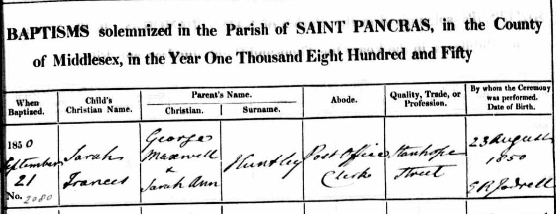 BAPTISMS solemnized in the Parish of SAINT PANCRAS, in the County
of Middlesex, in the Year One Thousand Eight Hundred and Fifty
When Baptized.
Child's Christian Name.
Parent's Name.
Christian.
Surname.
Abode.
Quality, Trade, or Profession.
By whom the Ceremony was performed. Date of Birth.
1850
September
21
No. 2080
Sarah
Frances
George
Maxwell
&
Sarah Ann
Huntley
Post Office
Clerk
Stanhope
Street
23 August
1850